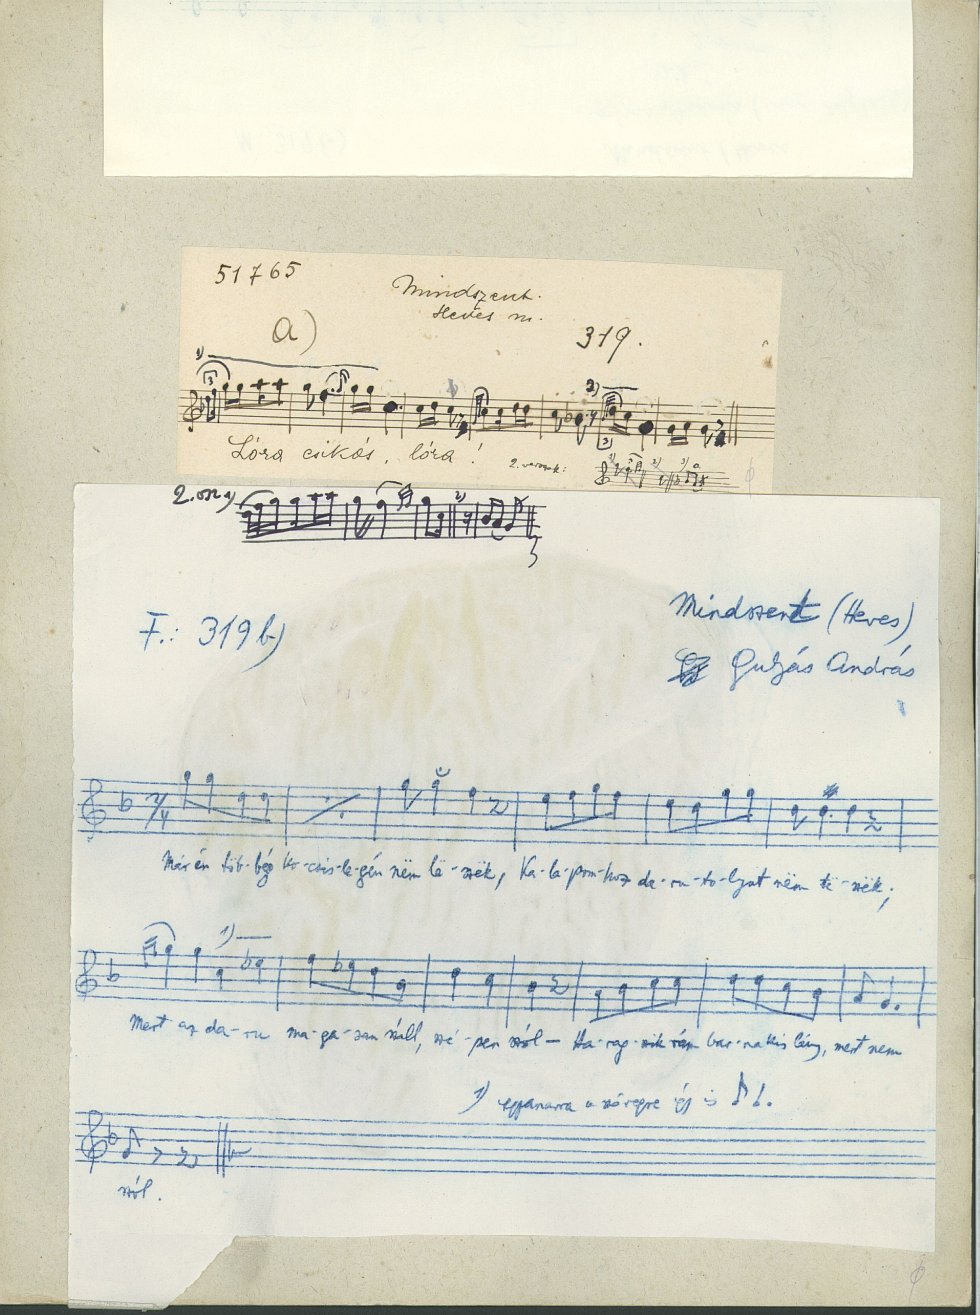 51765
Mindszent.
Heves m.
a)
319.
1)
3
2)
3)
Lóra csikós, lóra!
2. versszak:
1) 2) 3)
2. vsz 1) 2)
F.: 319 b)
Mindszent (Heves)
Gulyás András
2/4
Már én töb-bég ko-csis-le-gén nëm lë-szëk,
Ka-la-pom-hoz da-ru-to-lyat nëm të-szëk;
1)
Mert az da-ru ma-ga-san száll, szé-pen szól – Ha-rag-szik rám bar-na kis lány, mert nem
1) ugyanarra a szövegre így is
szól.